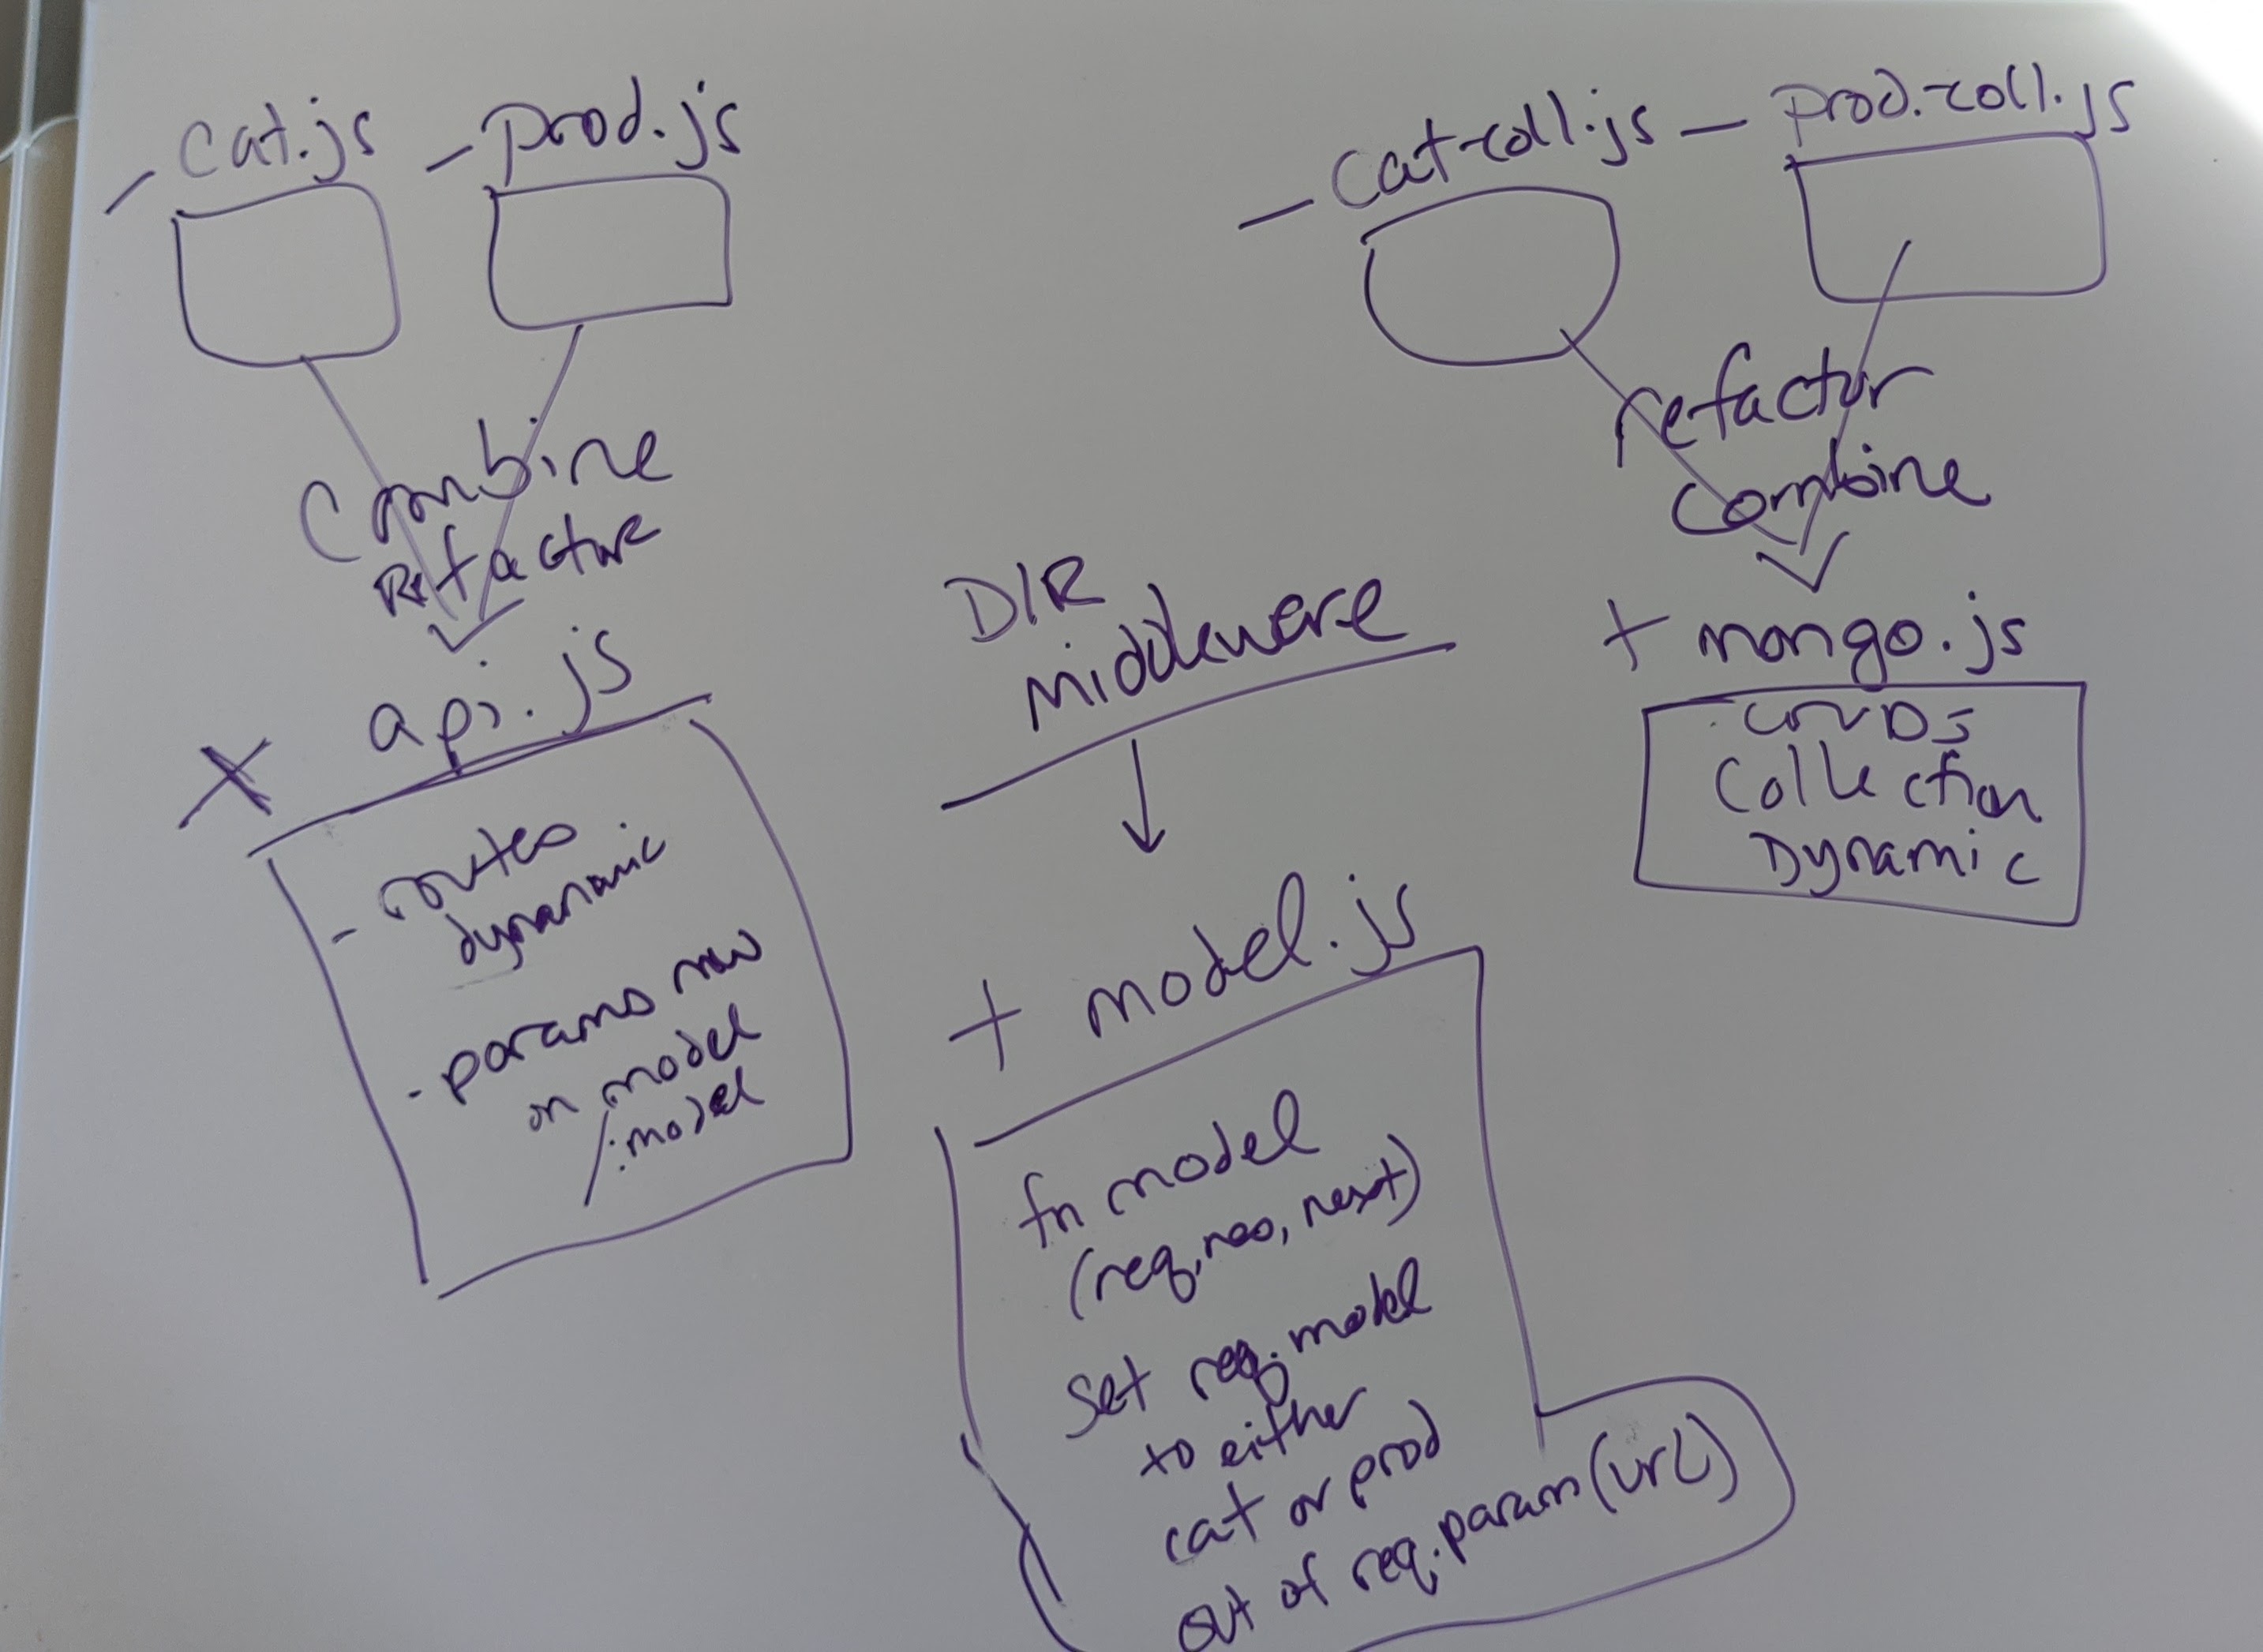 - Cat.js
- Prod.js
Combine
Refactor
X api.js
- routes
dynamic
- params now
on model
/:model
DIR
Middleware
+ model.js
fn model
(req, res, next)
set req.model
to either
cat or prod
out of req.param(url)
- Cat-coll.js
- Prod.-coll.js
refactor
combine
+ mongo.js
- CRUDS
Collection
Dynamic